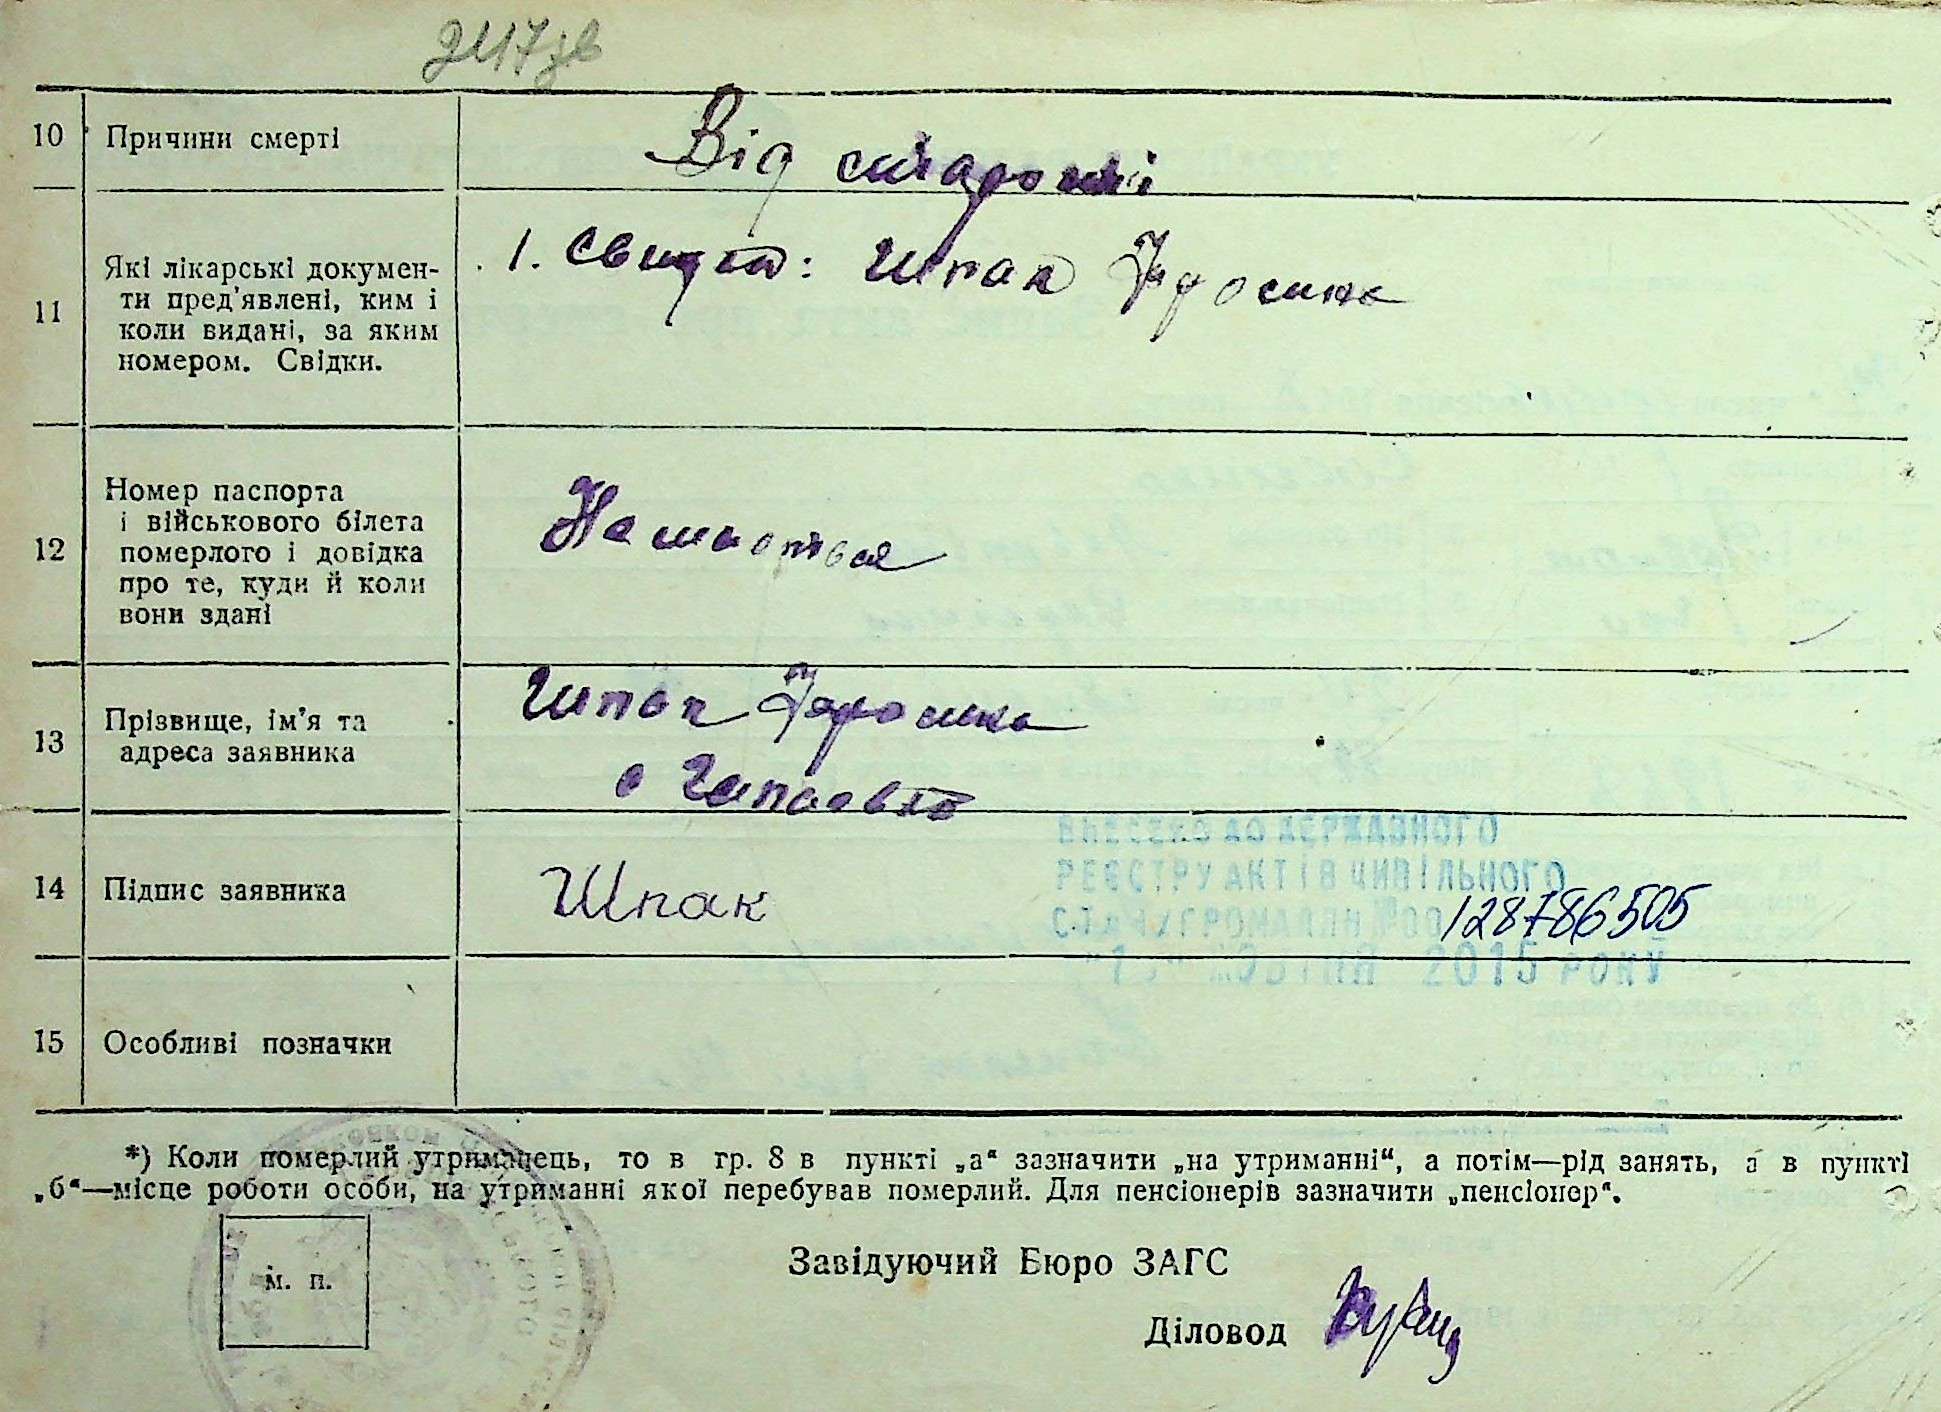 10 Причини смерті
Від старості
11 Які лікарські докумен-
ти пред'явлені, ким і
коли видані, за яким
номером. Свідки.
1. Шпак
12 Номер паспорта
і військового білета
померлого і довідка
про те, куди й коли
вони здані
13 Прізвище, ім'я та
адреса заявника
Шпак
14 Підпис заявника
Шпак
ВНЕСЕНО ДО ДЕРЖАВНОГО
РЕЄСТРУ АКТІВ ЦИВІЛЬНОГО
СТАНУ ГРОМАДЯН №00128786505
ЖОВТНЯ 2015 РОКУ
15 Особливі позначки
*) Коли померлий утриманець, то в гр. 8 в пункті „а“ зазначити „на утриманні“, а потім—рід занять, а в пункті
„б“—місце роботи особи, на утриманні якої перебував померлий. Для пенсіонерів зазначити „пенсіонер“.
м. п.
Завідуючий Бюро ЗАГС
Діловод